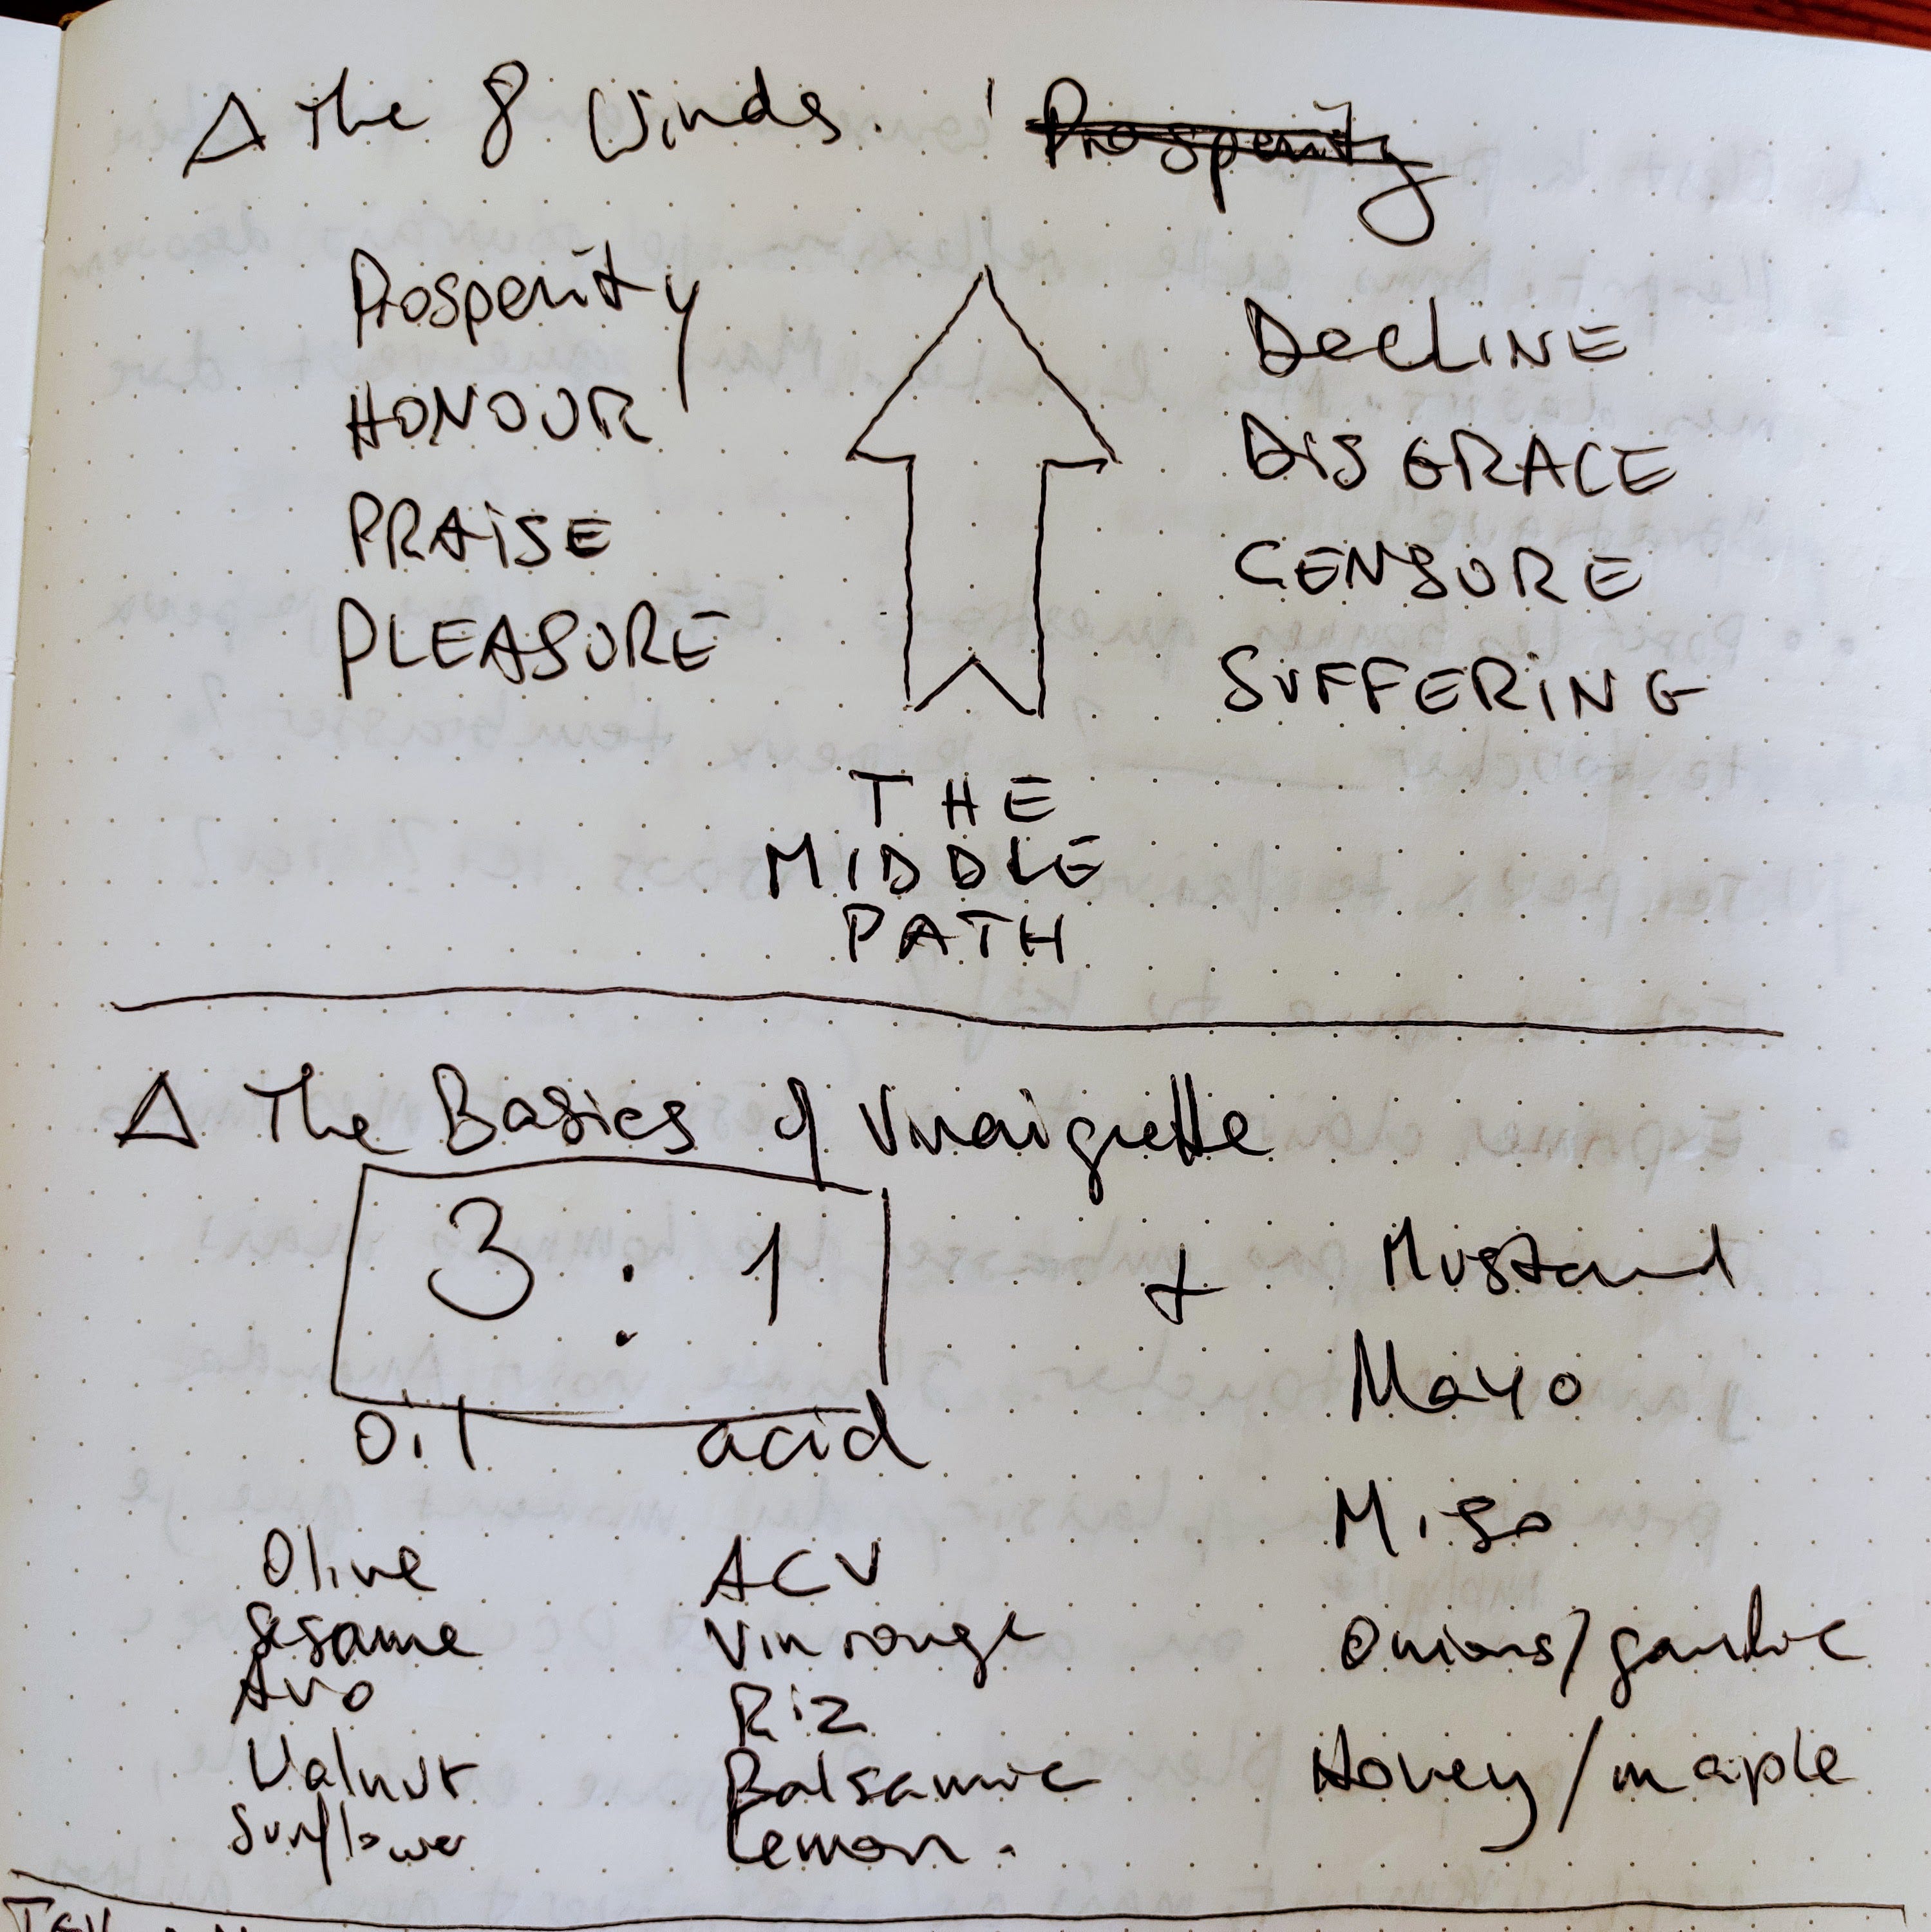 △ The 8 Winds. Prosperity
Prosperity
HONOUR
PRAISE
PLEASURE
DECLINE
DISGRACE
CENSURE
SUFFERING
THE
MIDDLE
PATH
△ The Basics of Vinaigrette
3 : 1
oil acid
+ Mustard
Mayo
Miso
Onions/garlic
Honey/maple
Olive
Sesame
Avo
Walnut
Sunflower
ACV
Vin rouge
Riz
Balsamic
Lemon.